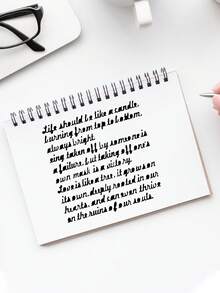 Life should be like a candle,
burning from top to bottom,
always bright.
eing taken off by someone is
a failure, but taking off one's
own mask is a victory.
Love is like a tree, it grows on
its own, deeply rooted in our
hearts, and can even thrive
on the ruins of our souls.